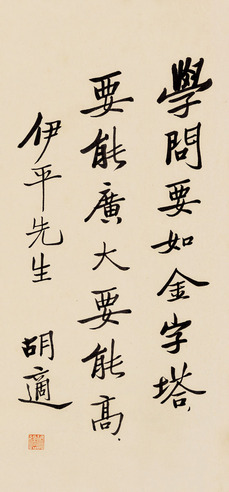 學問要如金字塔,
要能廣大要能高.
伊平先生
胡適